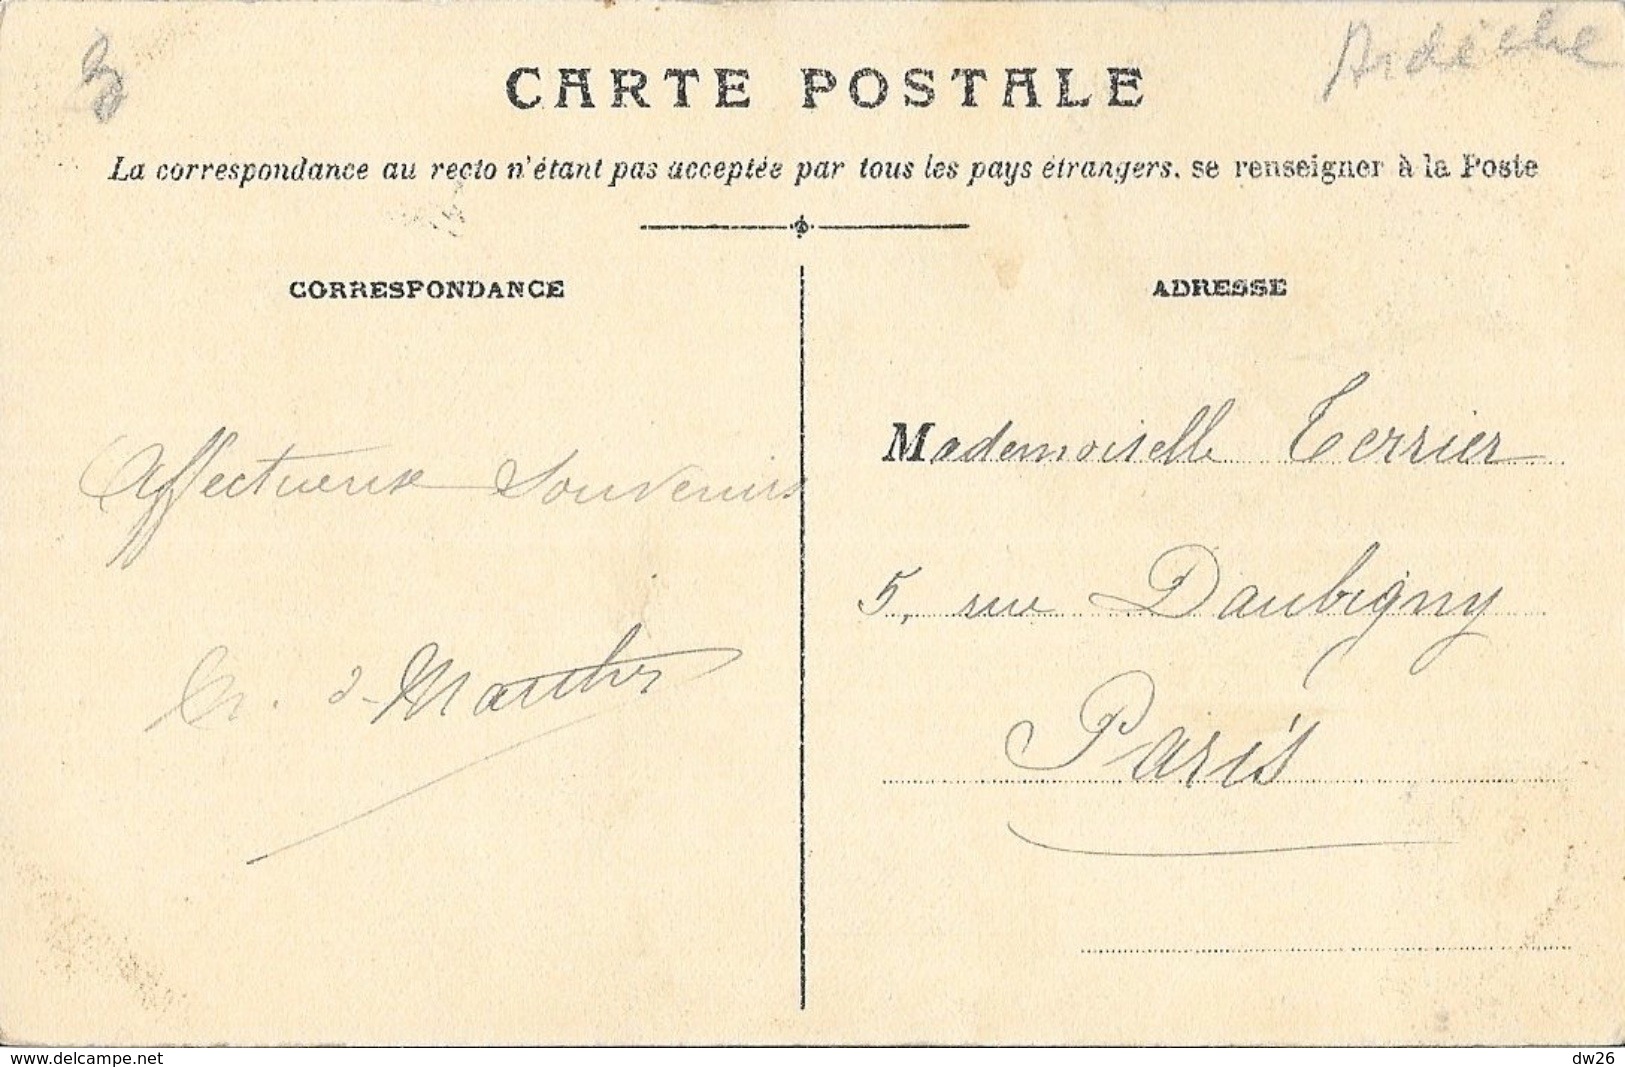 Ardèche
CARTE POSTALE
La correspondance au recto n'étant pas acceptée par tous les pays étrangers, se renseigner à la Poste
CORRESPONDANCE
Affectueux Souvenirs
ADRESSE
Mademoiselle Terrier
5, rue Daubigny
Paris
www.delcampe.net
dw26